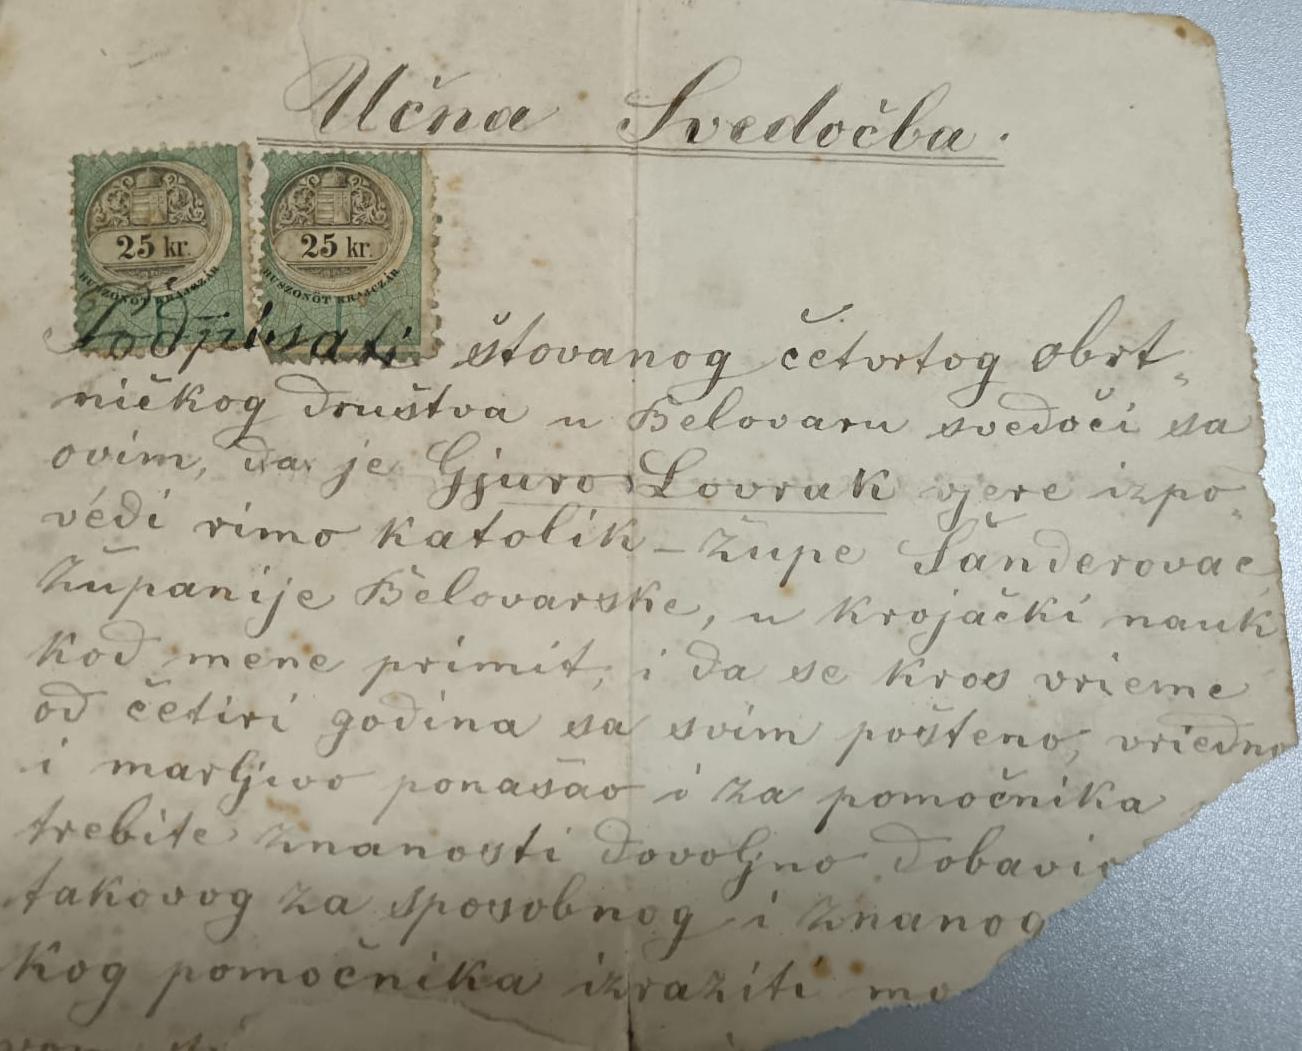 Učna Svedočba.
25 kr.
HUSZONÖT KRAJCZÁR
25 kr.
HUSZONÖT KRAJCZÁR
Podpisati štovanog četvrtog obrt„
ničkog društva u Belovaru svedoči sa
ovim, da je Gjuro Lovrak vjere izpo„
védi rimo katolik – župe Šanderovac,
Županije Belovarske, u krojački nauk
kod mene primit, i da se kros vrieme
od četiri godina sa svim pošteno, vriedno
i marljivo ponašao i za pomočnika
trebite znanosti dovoljno dobavio
takovog za sposobnog i znanog
kog pomočnika izraziti mo